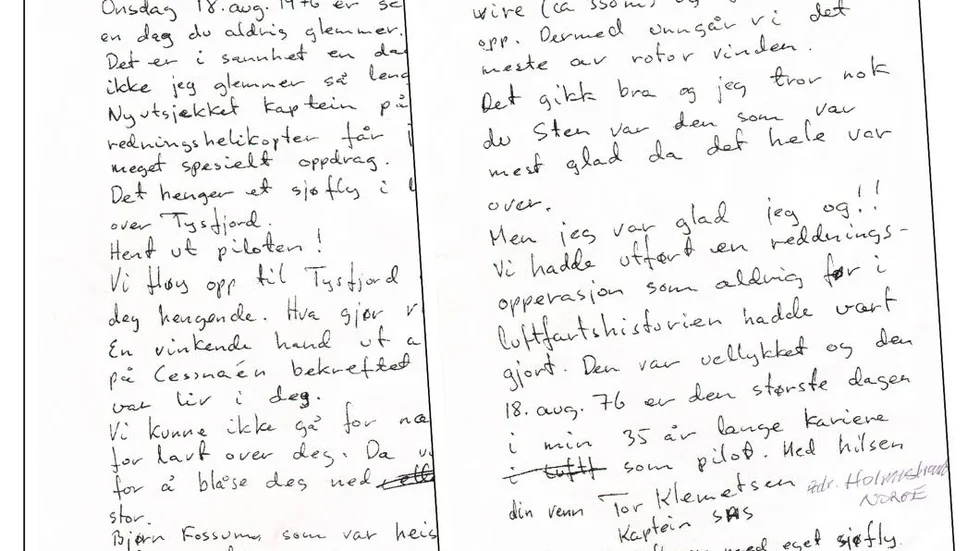 Onsdag 18. aug. 1976 er
en dag du aldri glemmer.
Det er i sannhet en
ikke jeg glemmer så
Nyutsjekket kaptein på
redningshelikopter får
meget spesielt oppdrag.
Det henger et sjøfly i
over Tysfjord.
Hent ut piloten!
Vi fløy opp til Tysfjord
deg hengende. Hva gjør
En vinkende hand ut
på Cessnaén bekreftet
var liv i deg.
Vi kunne ikke gå for
for lavt over deg. Da
for å blåse deg ned
stor.
Bjørn Fossum, som var
wire (ca 55m)
opp. Dermed unngår vi det
meste av rotor vinden.
Det gikk bra og jeg tror nok
du Sten var den som var
mest glad da det hele var
over.
Men jeg var glad jeg og!!
Vi hadde utført en redднings-
opperasjon som aldrig før i
luftfartshistorien hadde vært
gjort. Den var vellykket og den
18. aug. 76 er den største dagen
i min 35 år lange kariere
som pilot. Med hilsen
din venn Tor Klemetsen adr. Holmestrand
Kaptein SAS NORGE
med eget sjøfly.